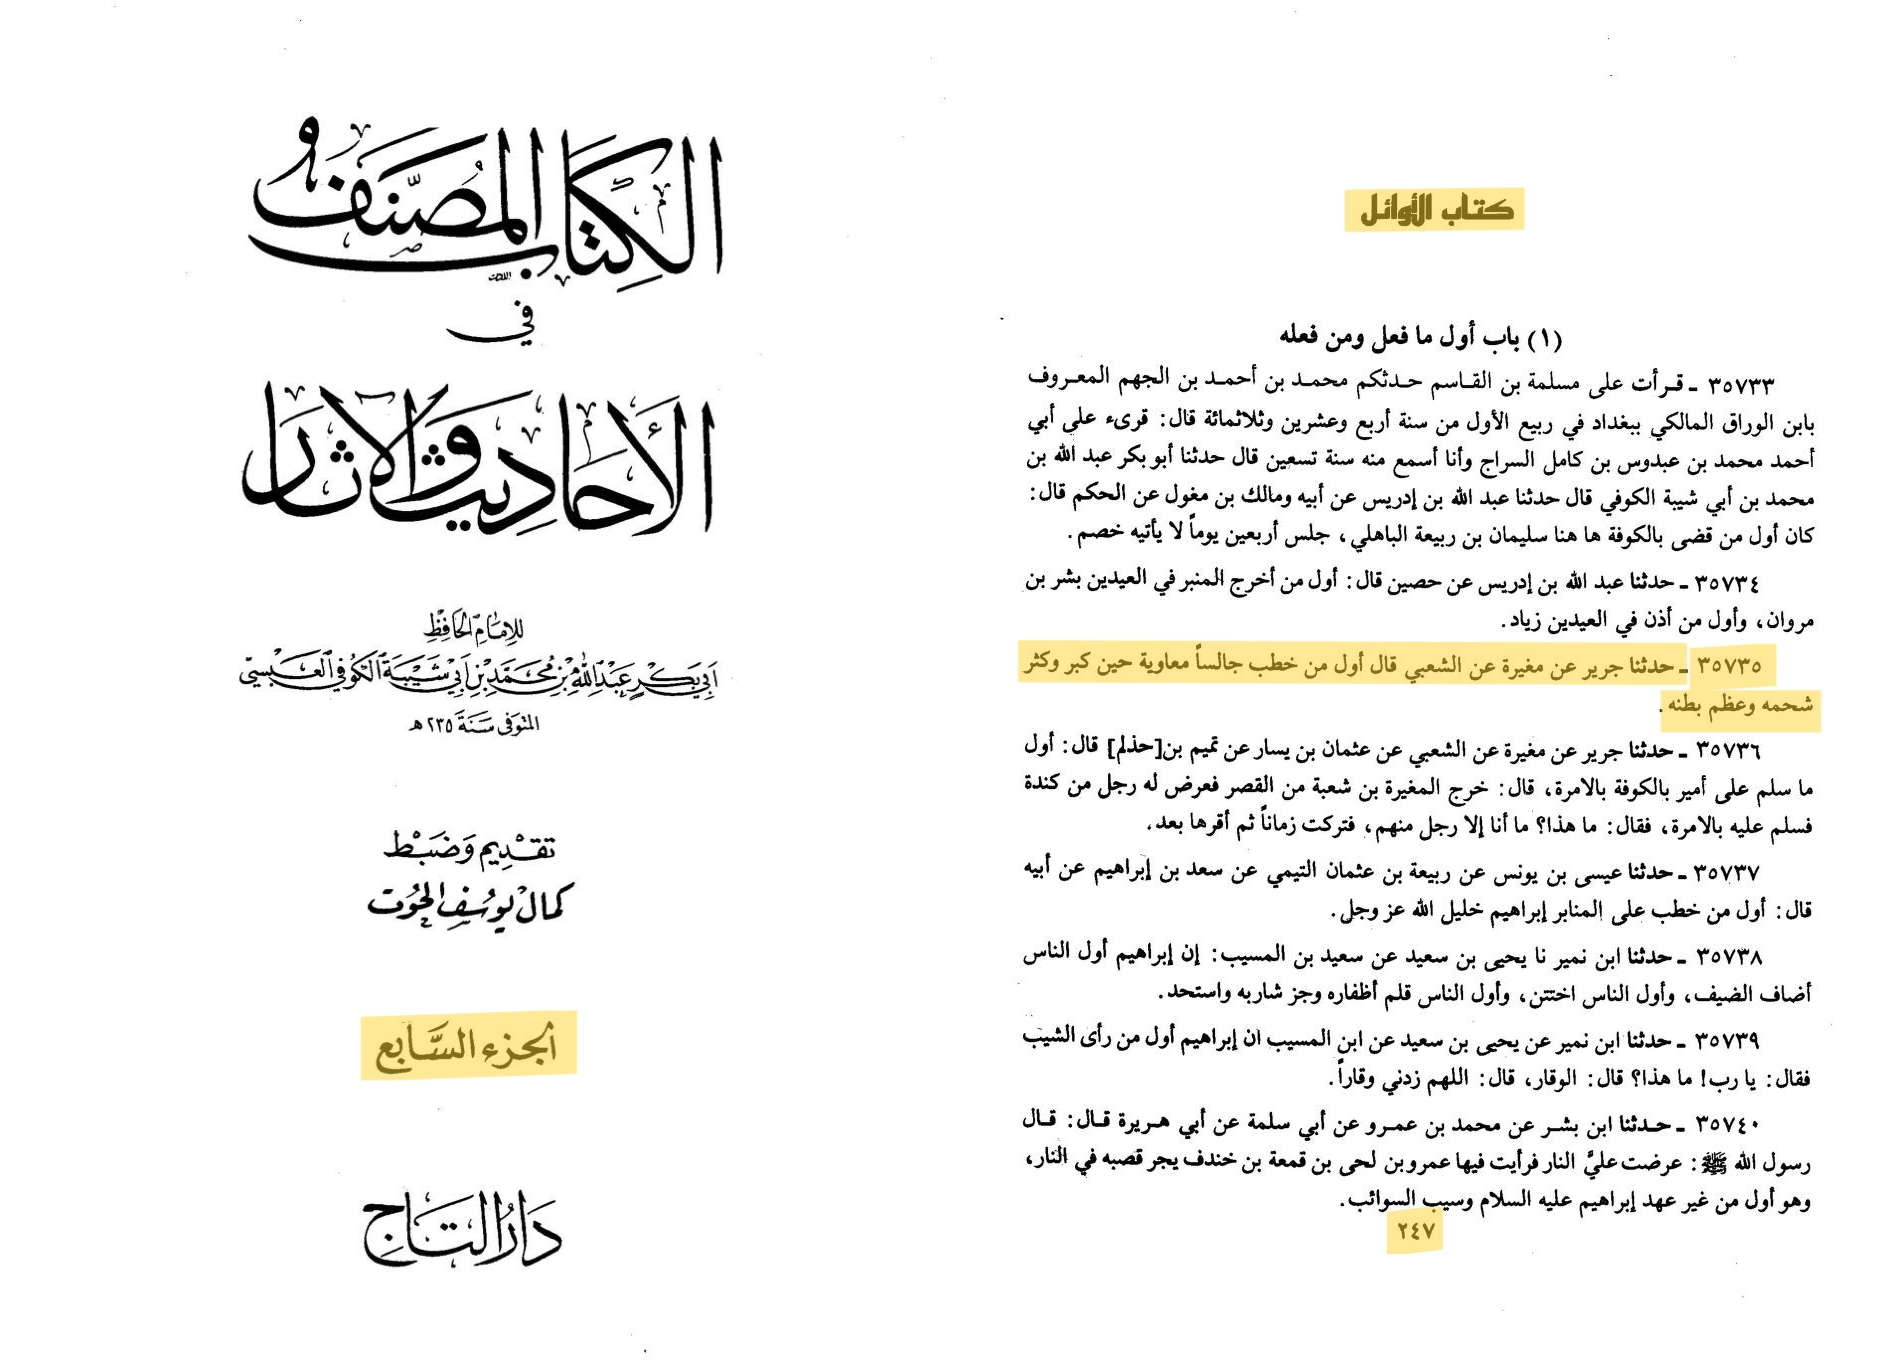 الكِتَابُ المُصَنَّف
في
الأَحَاديث والآثار
للإمَام الحَافِظ
أبي بَكْر عَبْد الله بْن مُحَمَّد بْن أبي شَيْبَة الكُوفي العَبْسيّ
المتَوفى سَنَة ٢٣٥ هـ
تقْديم وَضَبْط
كمال يوسُف الحُوت
الجزء السَّابع
دَارُ التَّاج
كتاب الأوائل
(١) باب أول ما فعل ومن فعله
٣٥٧٣٣ ـ قـرأت على مسلمة بن القـاسم حـدثكم محمـد بن أحمـد بن الجهم المعـروف
بابن الوراق المالكي ببغداد في ربيع الأول من سنة أربع وعشرين وثلاثمائة قال: قرىء على أبي
أحمد محمد بن عبدوس بن كامل السراج وأنا أسمع منه سنة تسعين قال حدثنا أبو بكر عبد الله بن
محمد بن أبي شيبة الكوفي قال حدثنا عبد الله بن إدريس عن أبيه ومالك بن مغول عن الحكم قال:
كان أول من قضى بالكوفة ها هنا سليمان بن ربيعة الباهلي، جلس أربعين يوماً لا يأتيه خصم.
٣٥٧٣٤ ـ حدثنا عبد الله بن إدريس عن حصين قال: أول من أخرج المنبر في العيدين بشر بن
مروان، وأول من أذن في العيدين زياد.
٣٥٧٣٥ ـ حدثنا جرير عن مغيرة عن الشعبي قال أول من خطب جالساً معاوية حين كبر وكثر
شحمه وعظم بطنه.
٣٥٧٣٦ ـ حدثنا جرير عن مغيرة عن الشعبي عن عثمان بن يسار عن تميم بن[حذلم] قال: أول
ما سلم على أمير بالكوفة بالامرة، قال: خرج المغيرة بن شعبة من القصر فعرض له رجل من كندة
فسلم عليه بالامرة، فقال: ما هذا؟ ما أنا إلا رجل منهم، فتركت زماناً ثم أقرها بعد.
٣٥٧٣٧ ـ حدثنا عيسى بن يونس عن ربيعة بن عثمان التيمي عن سعد بن إبراهيم عن أبيه
قال: أول من خطب على المنابر إبراهيم خليل الله عز وجل.
٣٥٧٣٨ ـ حدثنا ابن نمير نا يحيى بن سعيد عن سعيد بن المسيب: إن إبراهيم أول الناس
أضاف الضيف، وأول الناس اختتن، وأول الناس قلم أظفاره وجز شاربه واستحد.
٣٥٧٣٩ ـ حدثنا ابن نمير عن يحيى بن سعيد عن ابن المسيب ان إبراهيم أول من رأى الشيب
فقال: يا رب! ما هذا؟ قال: الوقار، قال: اللهم زدني وقاراً.
٣٥٧٤٠ ـ حـدثنا ابن بشـر عن محمد بن عمـرو عن أبي سلمة عن أبي هـريرة قـال: قـال
رسول الله ﷺ: عرضت عليَّ النار فرأيت فيها عمرو بن لحى بن قمعة بن خندف يجر قصبه في النار،
وهو أول من غير عهد إبراهيم عليه السلام وسيب السوائب.
٢٤٧